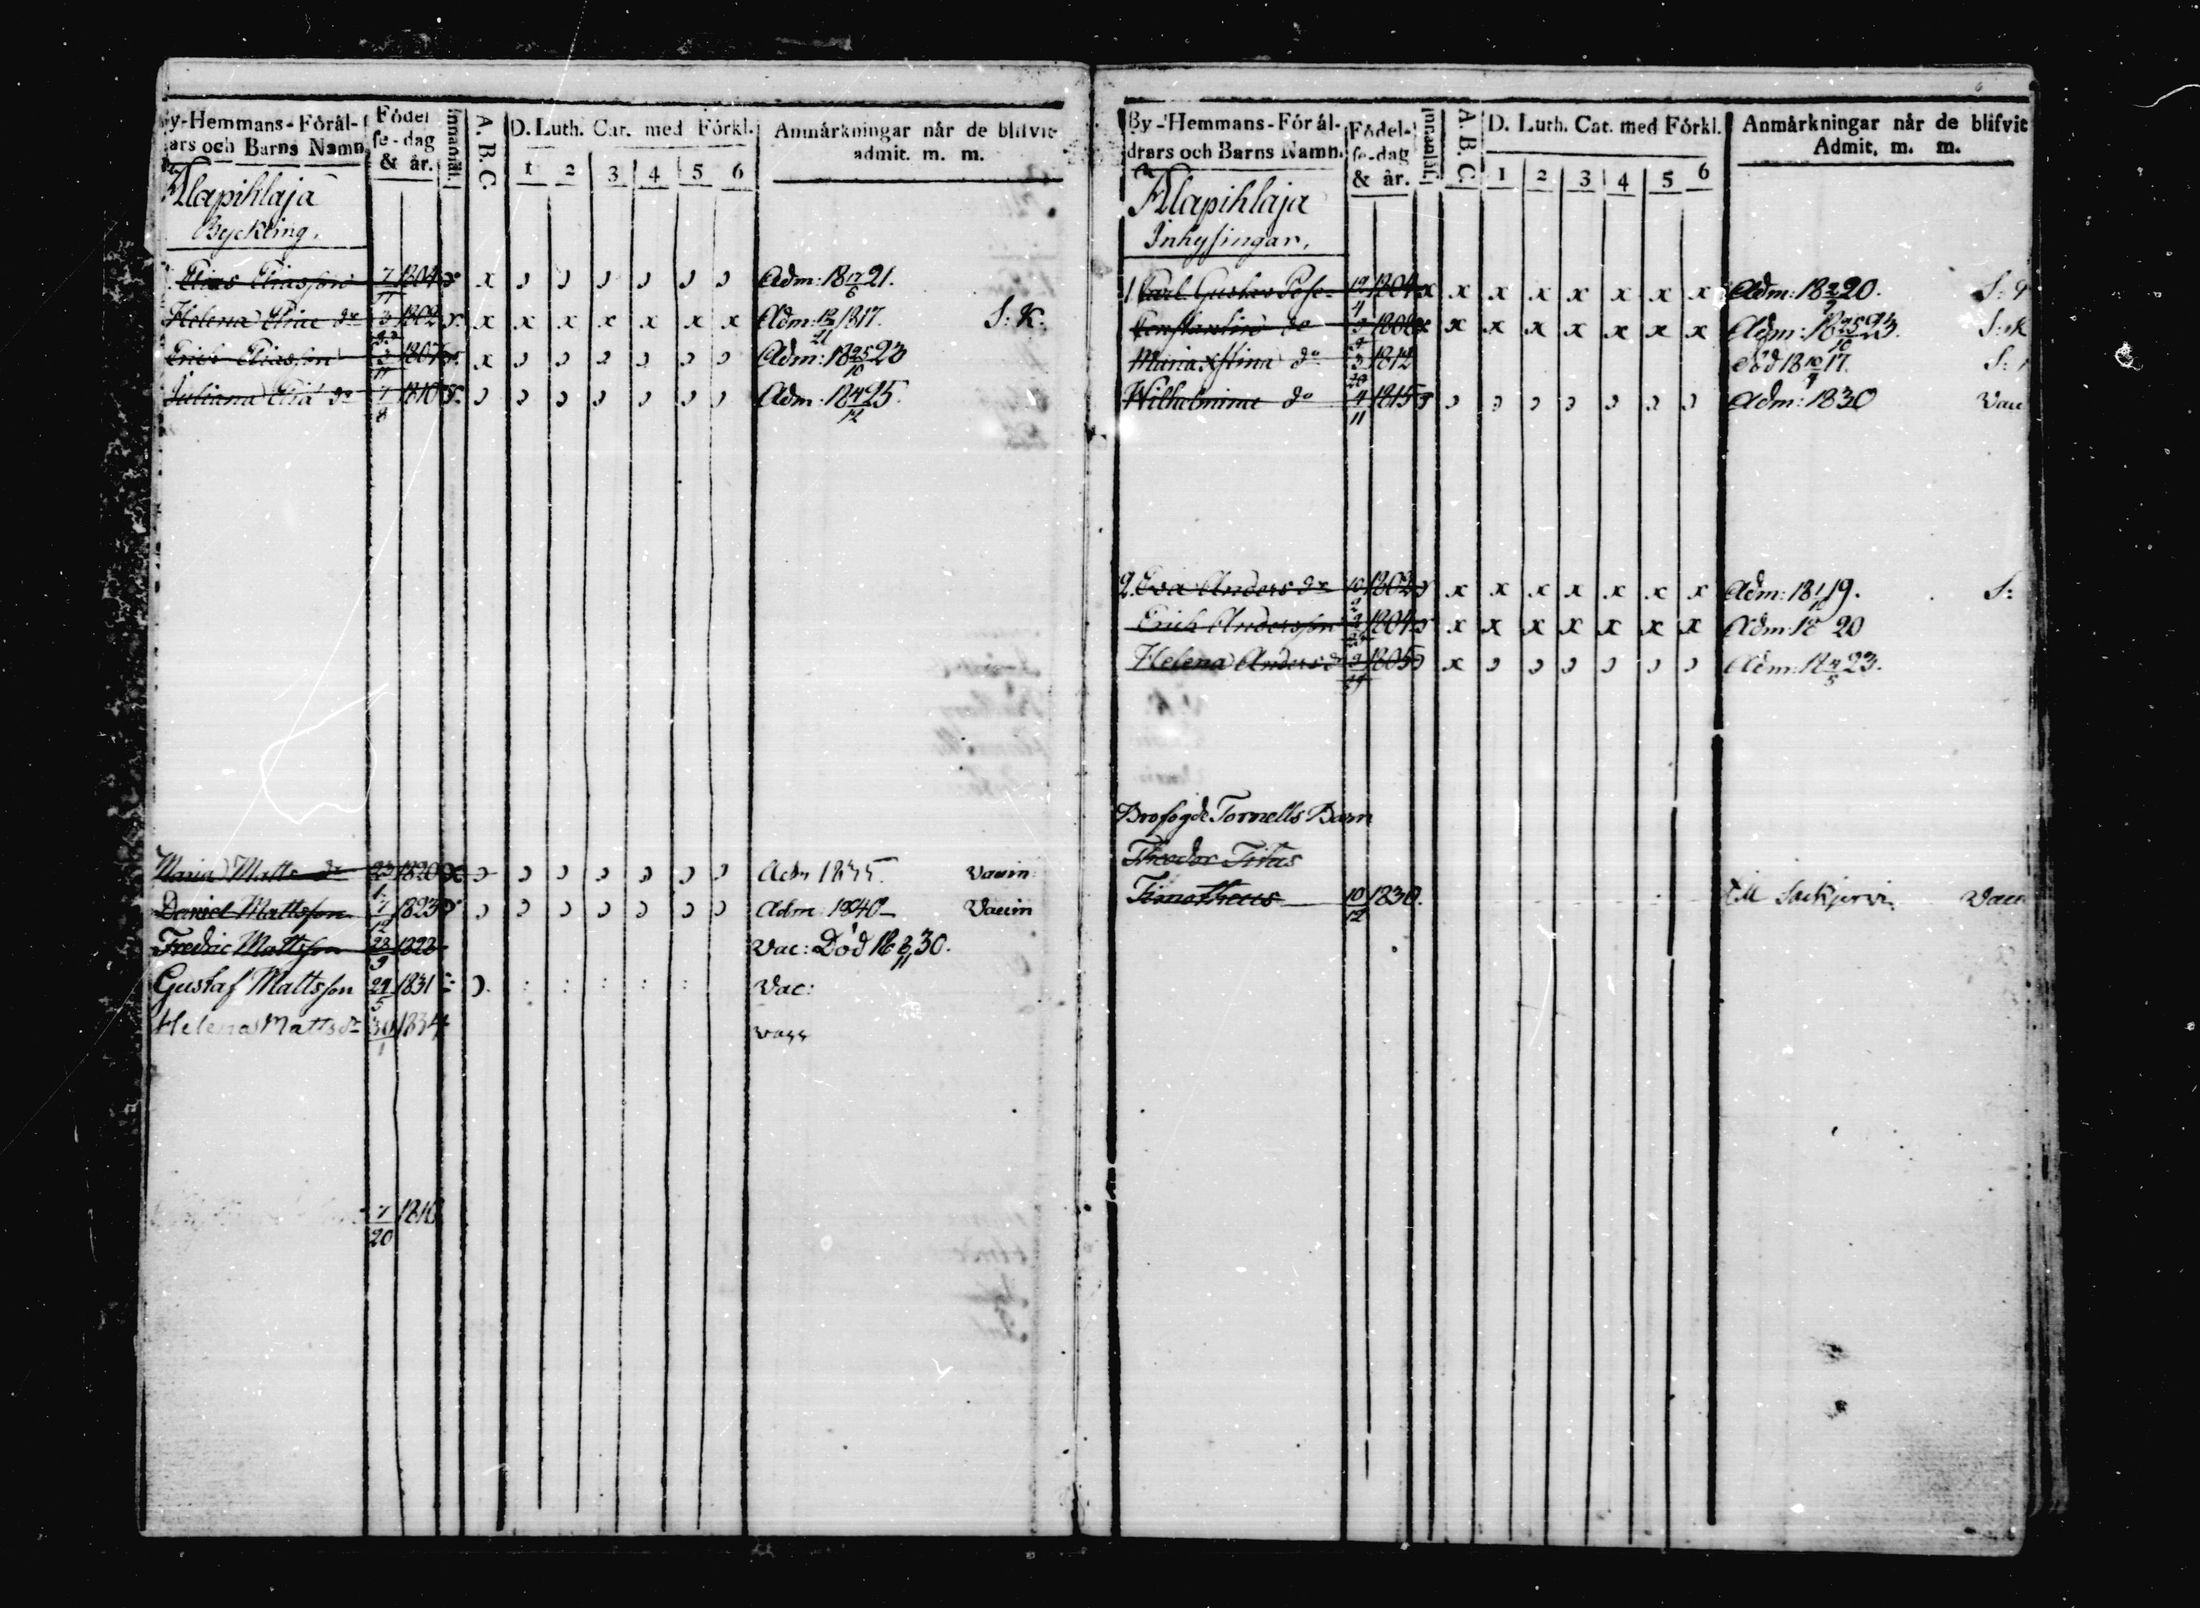 By-Hemmans-Förål-
ars och Barns Namn.
Födel
se-dag
& år.
Innanläs.
A. B. C.
D. Luth. Cat. med Förkl.
1 2 3 4 5 6
Anmårkningar når de blifvit
admit. m. m.
Alapihlaja
Byckling.
Elias Eliasson 7/11 1804 x x Adm: 18 17/6 21.
Helena Eliae dr 3 1802 x x x x x x x Adm: 1817. S: K:
Erich Eliasson 3/11 1807 x Adm: 18 25/10 23
Juliana Eliæ dr 7/8 1810 Adm: 18 4/12 25.
Maria Matts dr 23/1 1820 Adm 1835. Vaccin:
Daniel Mattsson 7/12 1823 Adm: 1840 Vaccin
Fredric Mattsson 23/9 1828 Vac: Död 18 30.
Gustaf Mattsson 29/5 1831 Vac:
Helena Matts dr 30/1 1834 vacc
7/20 1810
By-Hemmans-Förål-
drars och Barns Namn.
Födel-
se-dag
& år.
Innanläs.
A. B. C
D. Luth. Cat. med Förkl.
1 2 3 4 5 6
Anmårkningar når de blifvit
Admit. m. m.
Alapihlaja
Inhysingar.
1 Carl Gustav 12/4 1804 x x x x x x x x Adm: 18 20. S:
Constantin do 1808 x x x x x x x x Adm: 18 25/10 23. S: K
Maria Xstina do 3 1812 död 18 17. S:
Wilhelmina do 4/11 1815 Adm: 1830 Vac
2. Eva Anders dr 10 1802 x x x x x x x Adm: 18 19. S:
Erich Andersson 1804 x x x x x x x Adm: 18 20
Helena Anders dr 1805 x Adm: 18 4/5 23.
Brofogde Tornells Barn
Theodor Titus
Timotheus 10/12 1830. till Säkjervi. Vac